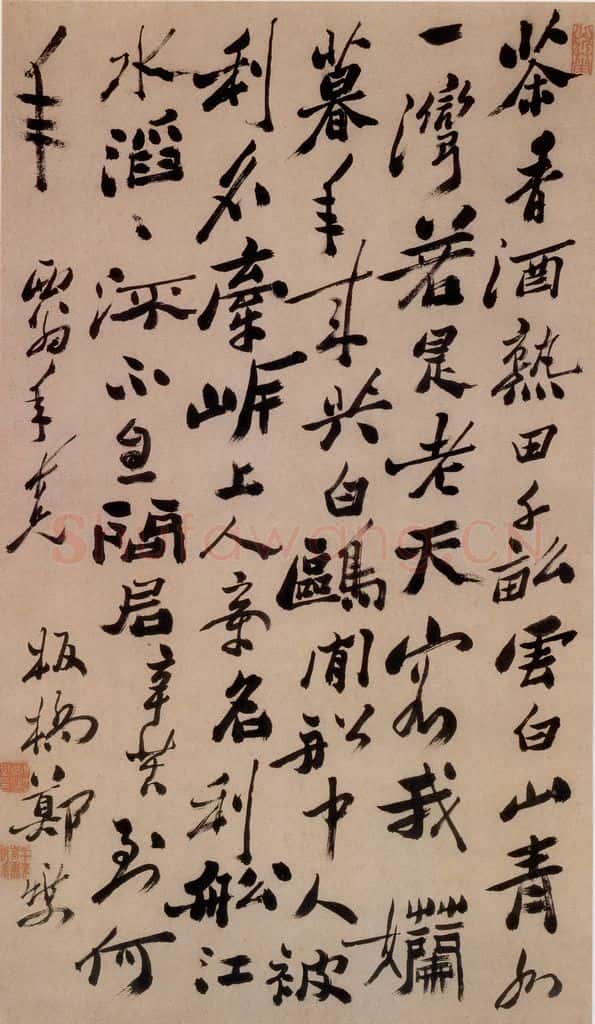 茶香酒熟田千畝雲白山青水
一灣若是老天容我嬾
暮年来與白鷗閒船中人被
利名牽岸上人牽名利船江
水滔〻流不息問君辛苦到何
年
翁年
板橋鄭燮
Shufawang.CN